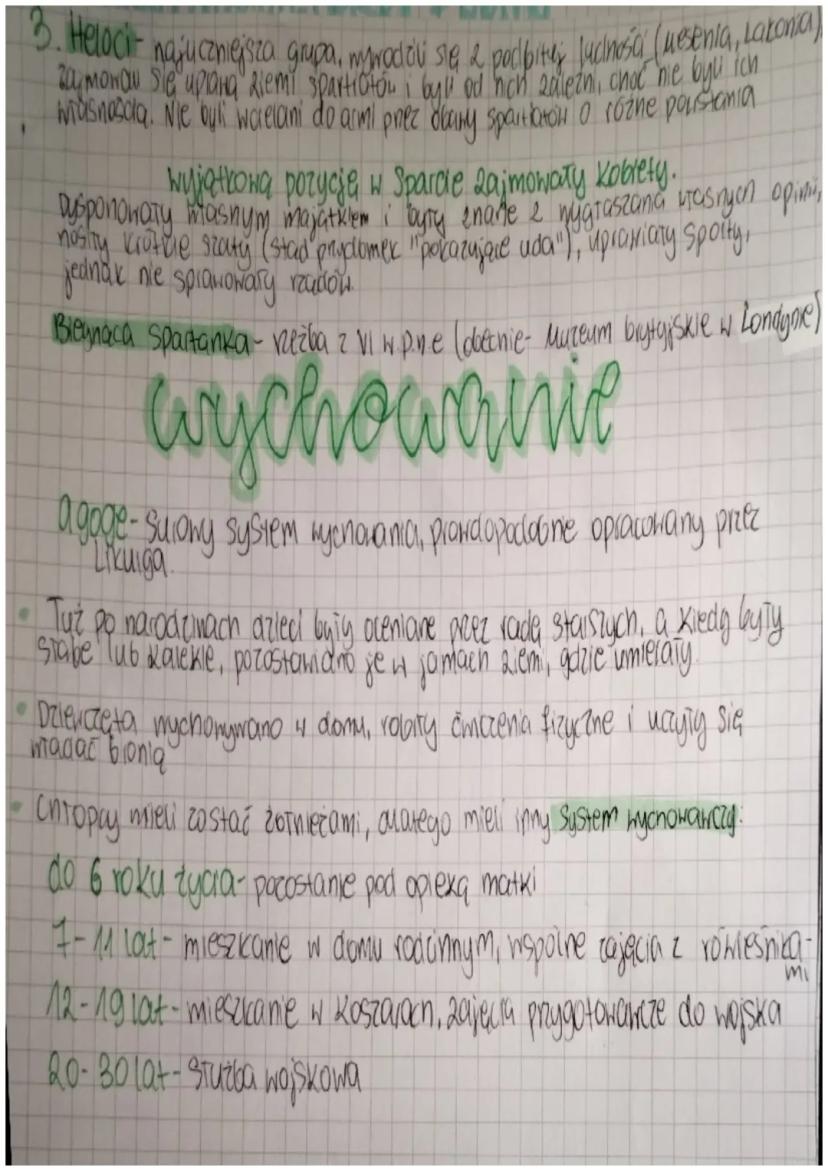 3. Heloci - najliczniejsza grupa, wywodzili się z podbitej ludności (Mesenia, Lakonia)
zajmowali się uprawą ziemi spartiatów i byli od nich zależni, choć nie byli ich
własnością. Nie byli wcielani do armi przez obawy spartiatów o różne powstania
Wyjątkową pozycję w Sparcie zajmowały kobiety.
Dysponowały własnym majątkiem i były znane z wygłaszania własnych opinii,
nosiły krótkie szaty (stąd przydomek "pokazujące uda"), uprawiały sporty,
jednak nie sprawowały rządów.
Biegnąca Spartanka - rzeźba z VI w p.n.e (obecnie - Muzeum brytyjskie w Londynie)
wychowanie
agoge - surowy system wychowania, prawdopodobnie opracowany przez
Likurga.
• Tuż po narodzinach dzieci były oceniane przez radę starszych, a kiedy były
słabe lub kalekie, pozostawiano je w jamach ziemi, gdzie umierały.
• Dziewczęta wychowywano w domu, robiły ćwiczenia fizyczne i uczyły się
władać bronią
• Chłopcy mieli zostać żołnieżami, dlatego mieli inny system wychowawczy:
do 6 roku życia - pozostanie pod opieką matki
7-11 lat - mieszkanie w domu rodzinnym, wspólne zajęcia z rówieśnika-
mi
12-19 lat - mieszkanie w koszarach, zajęcia przygotowawcze do wojska
20-30 lat - służba wojskowa